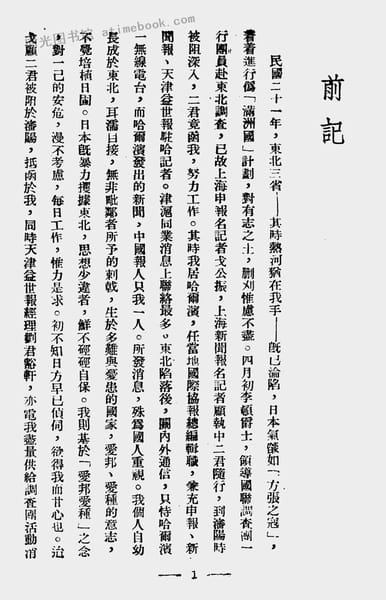 光图书馆 atimebook.com
前記
民國二十一年，東北三省——其時熱河猶在我手——旣已淪陷，日本氣燄如「方張之冠」，
着着進行僞「滿洲國」計劃，對有志之士，刪刈惟慮不盡。四月初李頓爵士，領導國聯調查團一
行團員赴東北調查，已故上海申報名記者戈公振，上海新聞報名記者顧執中二君隨行，到瀋陽時
被阻深入，二君竟函我，努力工作。其時我居哈爾濱，任當地國際協報總編輯職，兼充申報、新
聞報、天津益世報駐哈記者。津滬同業消息上聯絡最多。東北陷落後，關內外通信，只恃哈爾濱
一無線電台，而哈爾濱發出的新聞，中國報人只我一人。所發消息，殊爲國人重視。我個人自幼
長成於東北，耳濡目接，無非毗鄰者所予的刺戟，生於多難與憂患的國家，愛邦、愛種的意志，
不覺培植日固。日本旣暴力攫據東北，思想少違者，鮮不硜硜自保。我則基於「愛邦愛種」之念
，對一己的安危，漫不考慮，每日工作，惟力是求。初不知日方早已偵伺，欲得我而甘心也。迨
戈顧二君被阻於瀋陽，抵函於我，同時天津益世報經理劉君豁軒，亦電我盡量供給調查團活動消
— 1 —